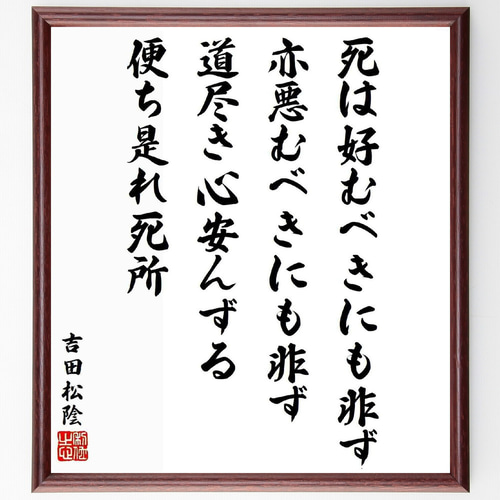 死は好むべきにも非ず
亦悪むべきにも非ず
道尽き心安んずる
便ち是れ死所
吉田松陰